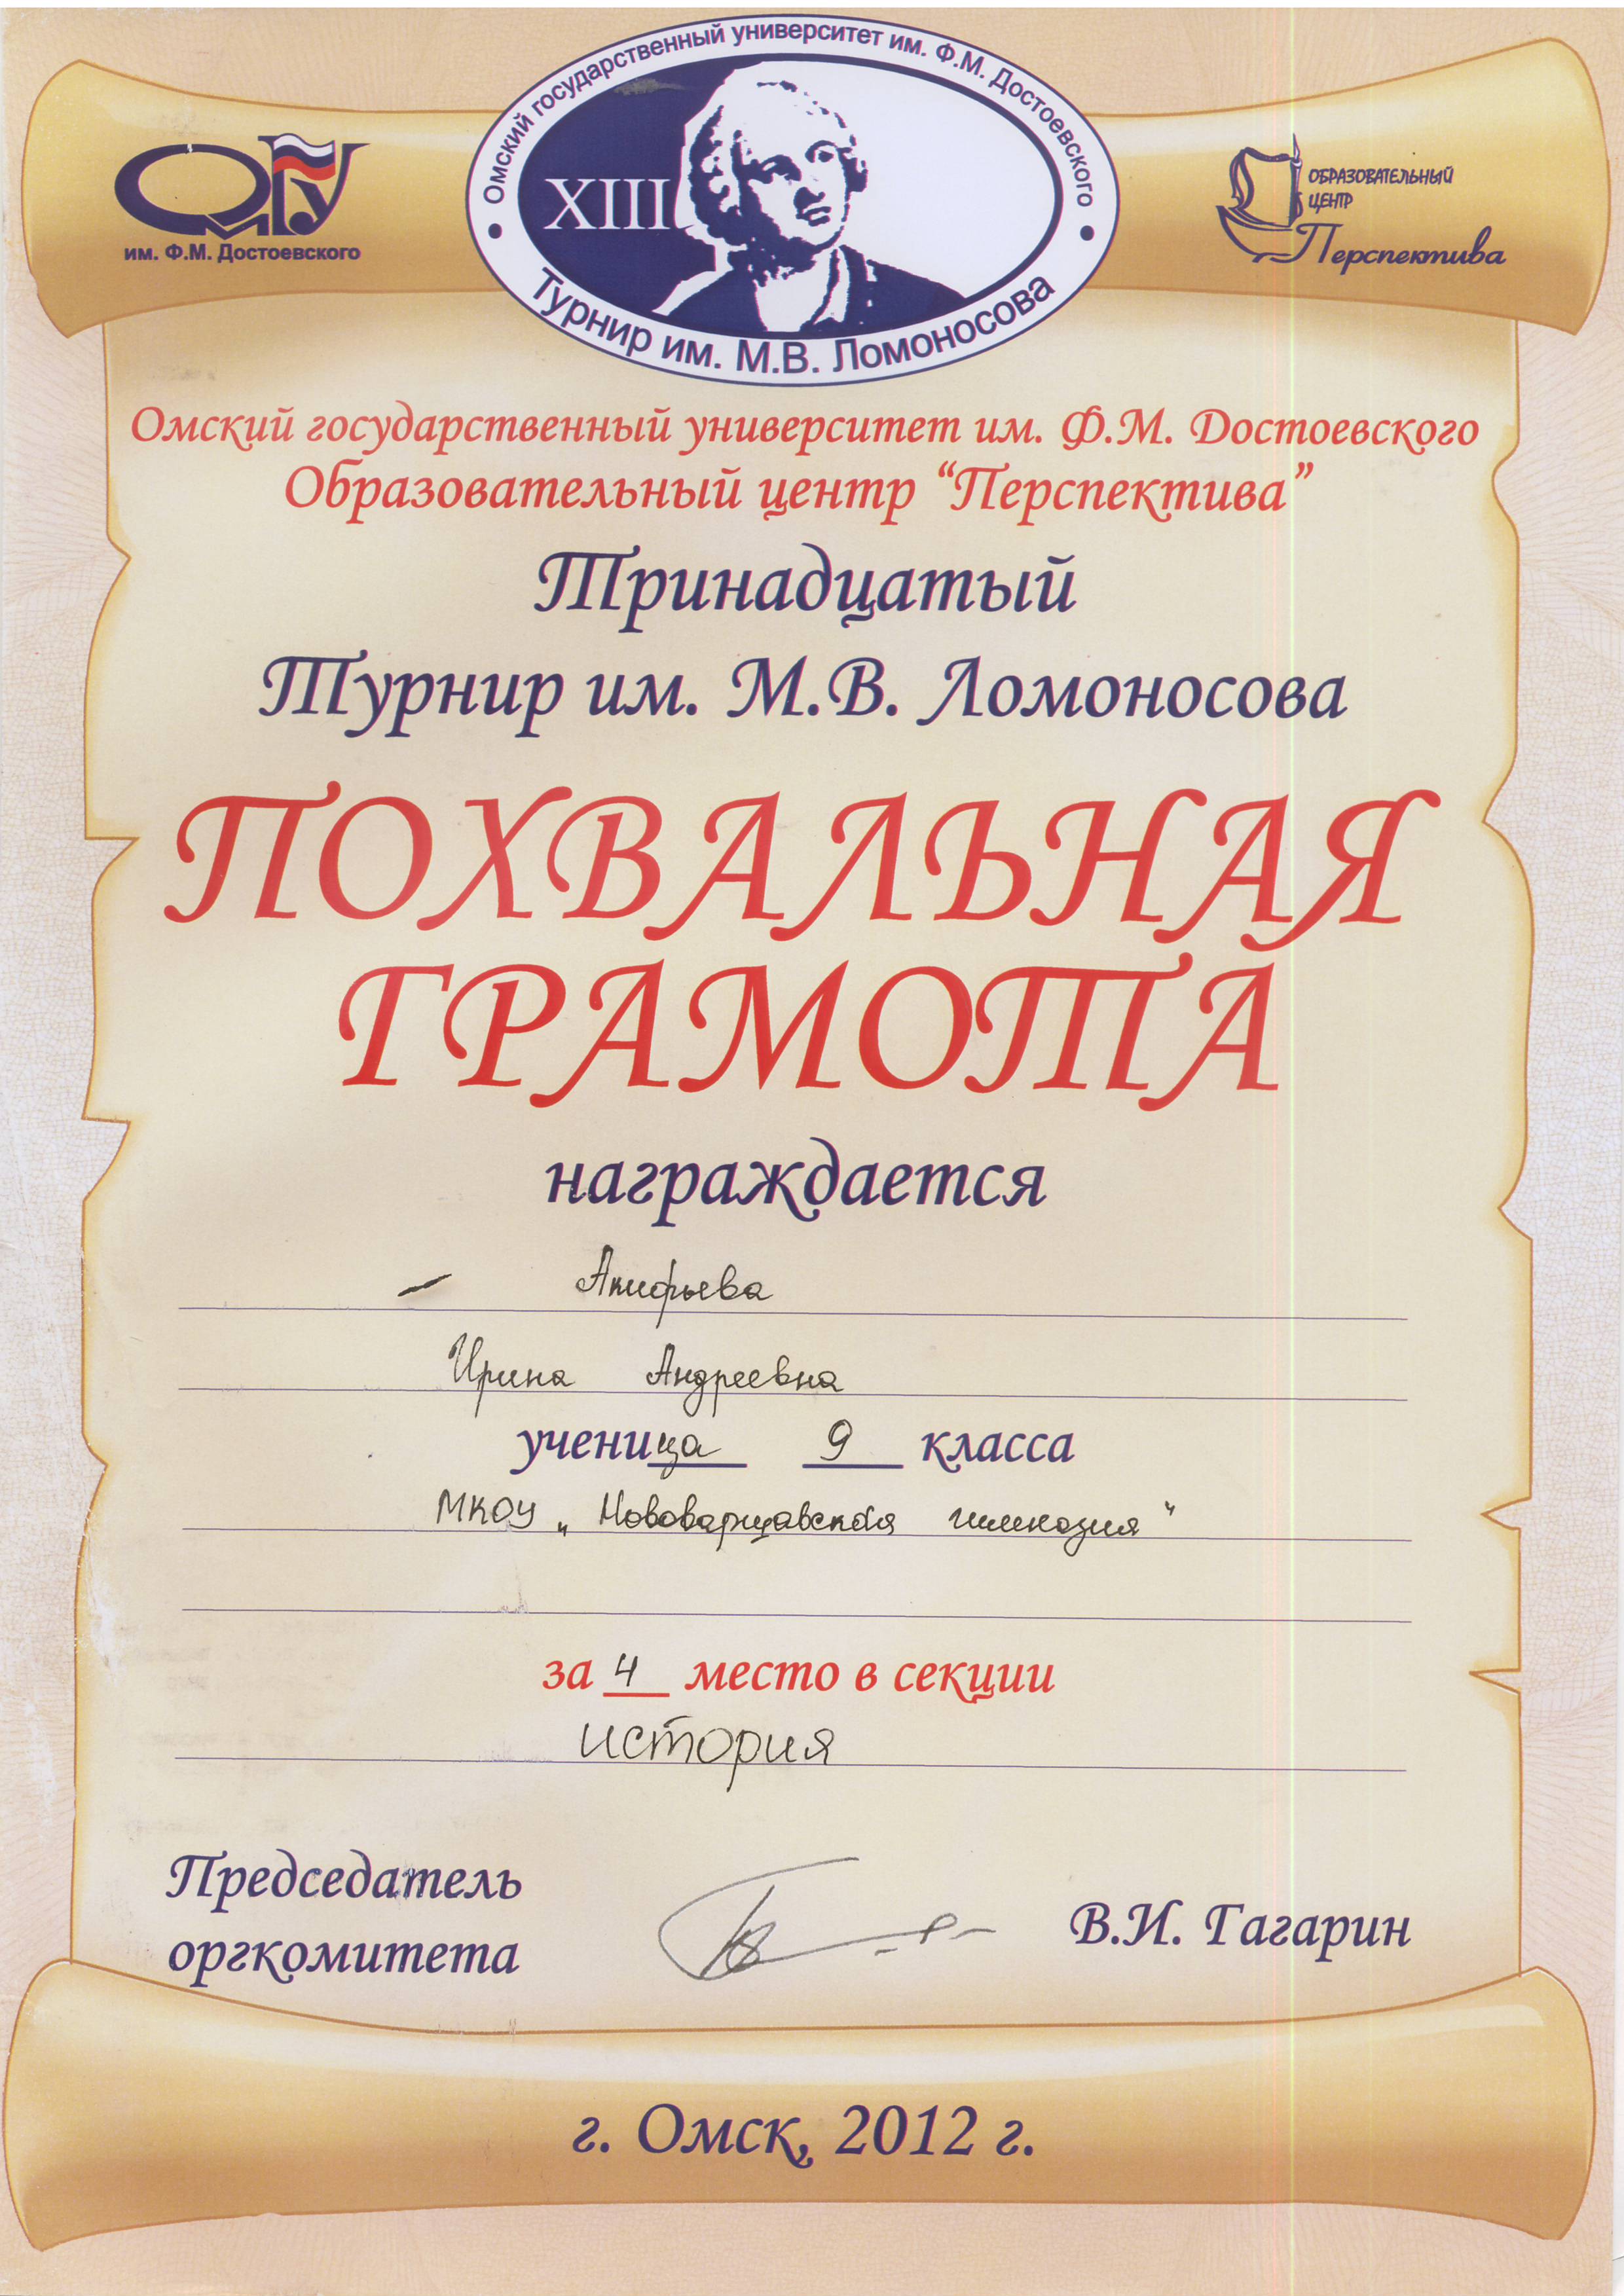 Омский государственный университет им. Ф.М. Достоевского
XIII
Турнир им. М.В. Ломоносова
ОмГУ
им. Ф.М. Достоевского
ОБРАЗОВАТЕЛЬНЫЙ
ЦЕНТР
Перспектива
Омский государственный университет им. Ф.М. Достоевского
Образовательный центр “Перспектива”
Тринадцатый
Турнир им. М.В. Ломоносова
ПОХВАЛЬНАЯ
ГРАМОТА
награждается
Ирина Андреевна
ученица 9 класса
МКОУ „Нововаршавская гимназия“
за 4 место в секции
история
Председатель
оргкомитета
В.И. Гагарин
г. Омск, 2012 г.